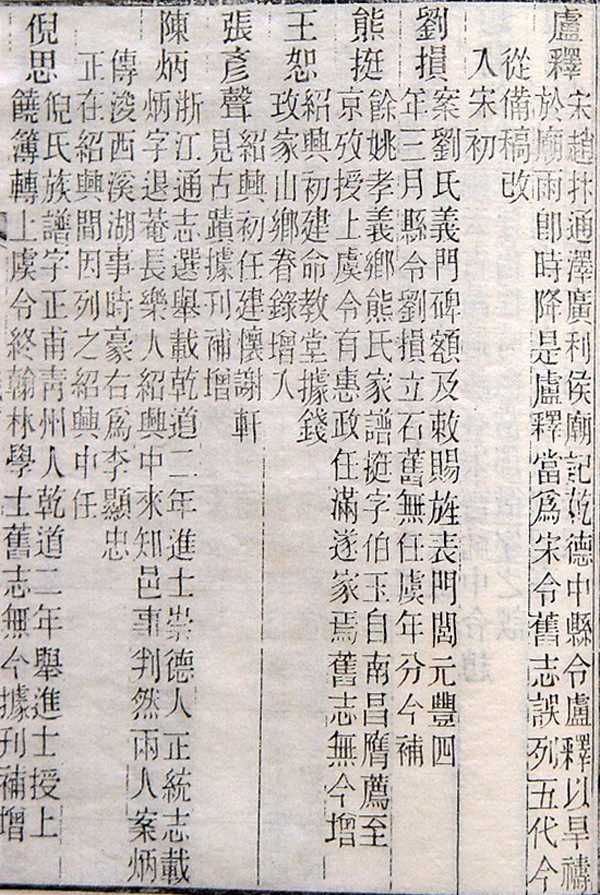 盧釋 宋趙抃通澤廣利侯廟記乾德中縣令盧釋以旱禱
於廟雨卽時降是盧釋當爲宋令舊志誤列五代今
從備稿改
入宋初
劉損 案劉氏義門碑額及敕賜旌表門閭元豐四
年三月縣令劉損立石舊無任虞年分今補
熊挺 餘姚孝義鄉熊氏家譜挺字伯玉自南昌膺薦至
京攷授上虞令有惠政任滿遂家焉舊志無今增
王恕 紹興初建命教堂據錢
玫家山鄉眷錄增入
張彥聲 紹興初任建懷謝軒
見古蹟據刊補增
陳炳 浙江通志選舉載乾道二年進士崇德人正統志載
炳字退菴長樂人紹興中來知邑事判然兩人案炳
傳浚西溪湖事時豪右爲李顯忠
正在紹興間因列之紹興中任
倪思 倪氏族譜字正甫青州人乾道二年舉進士授上
饒簿轉上虞令終翰林學士舊志無今據刊補增